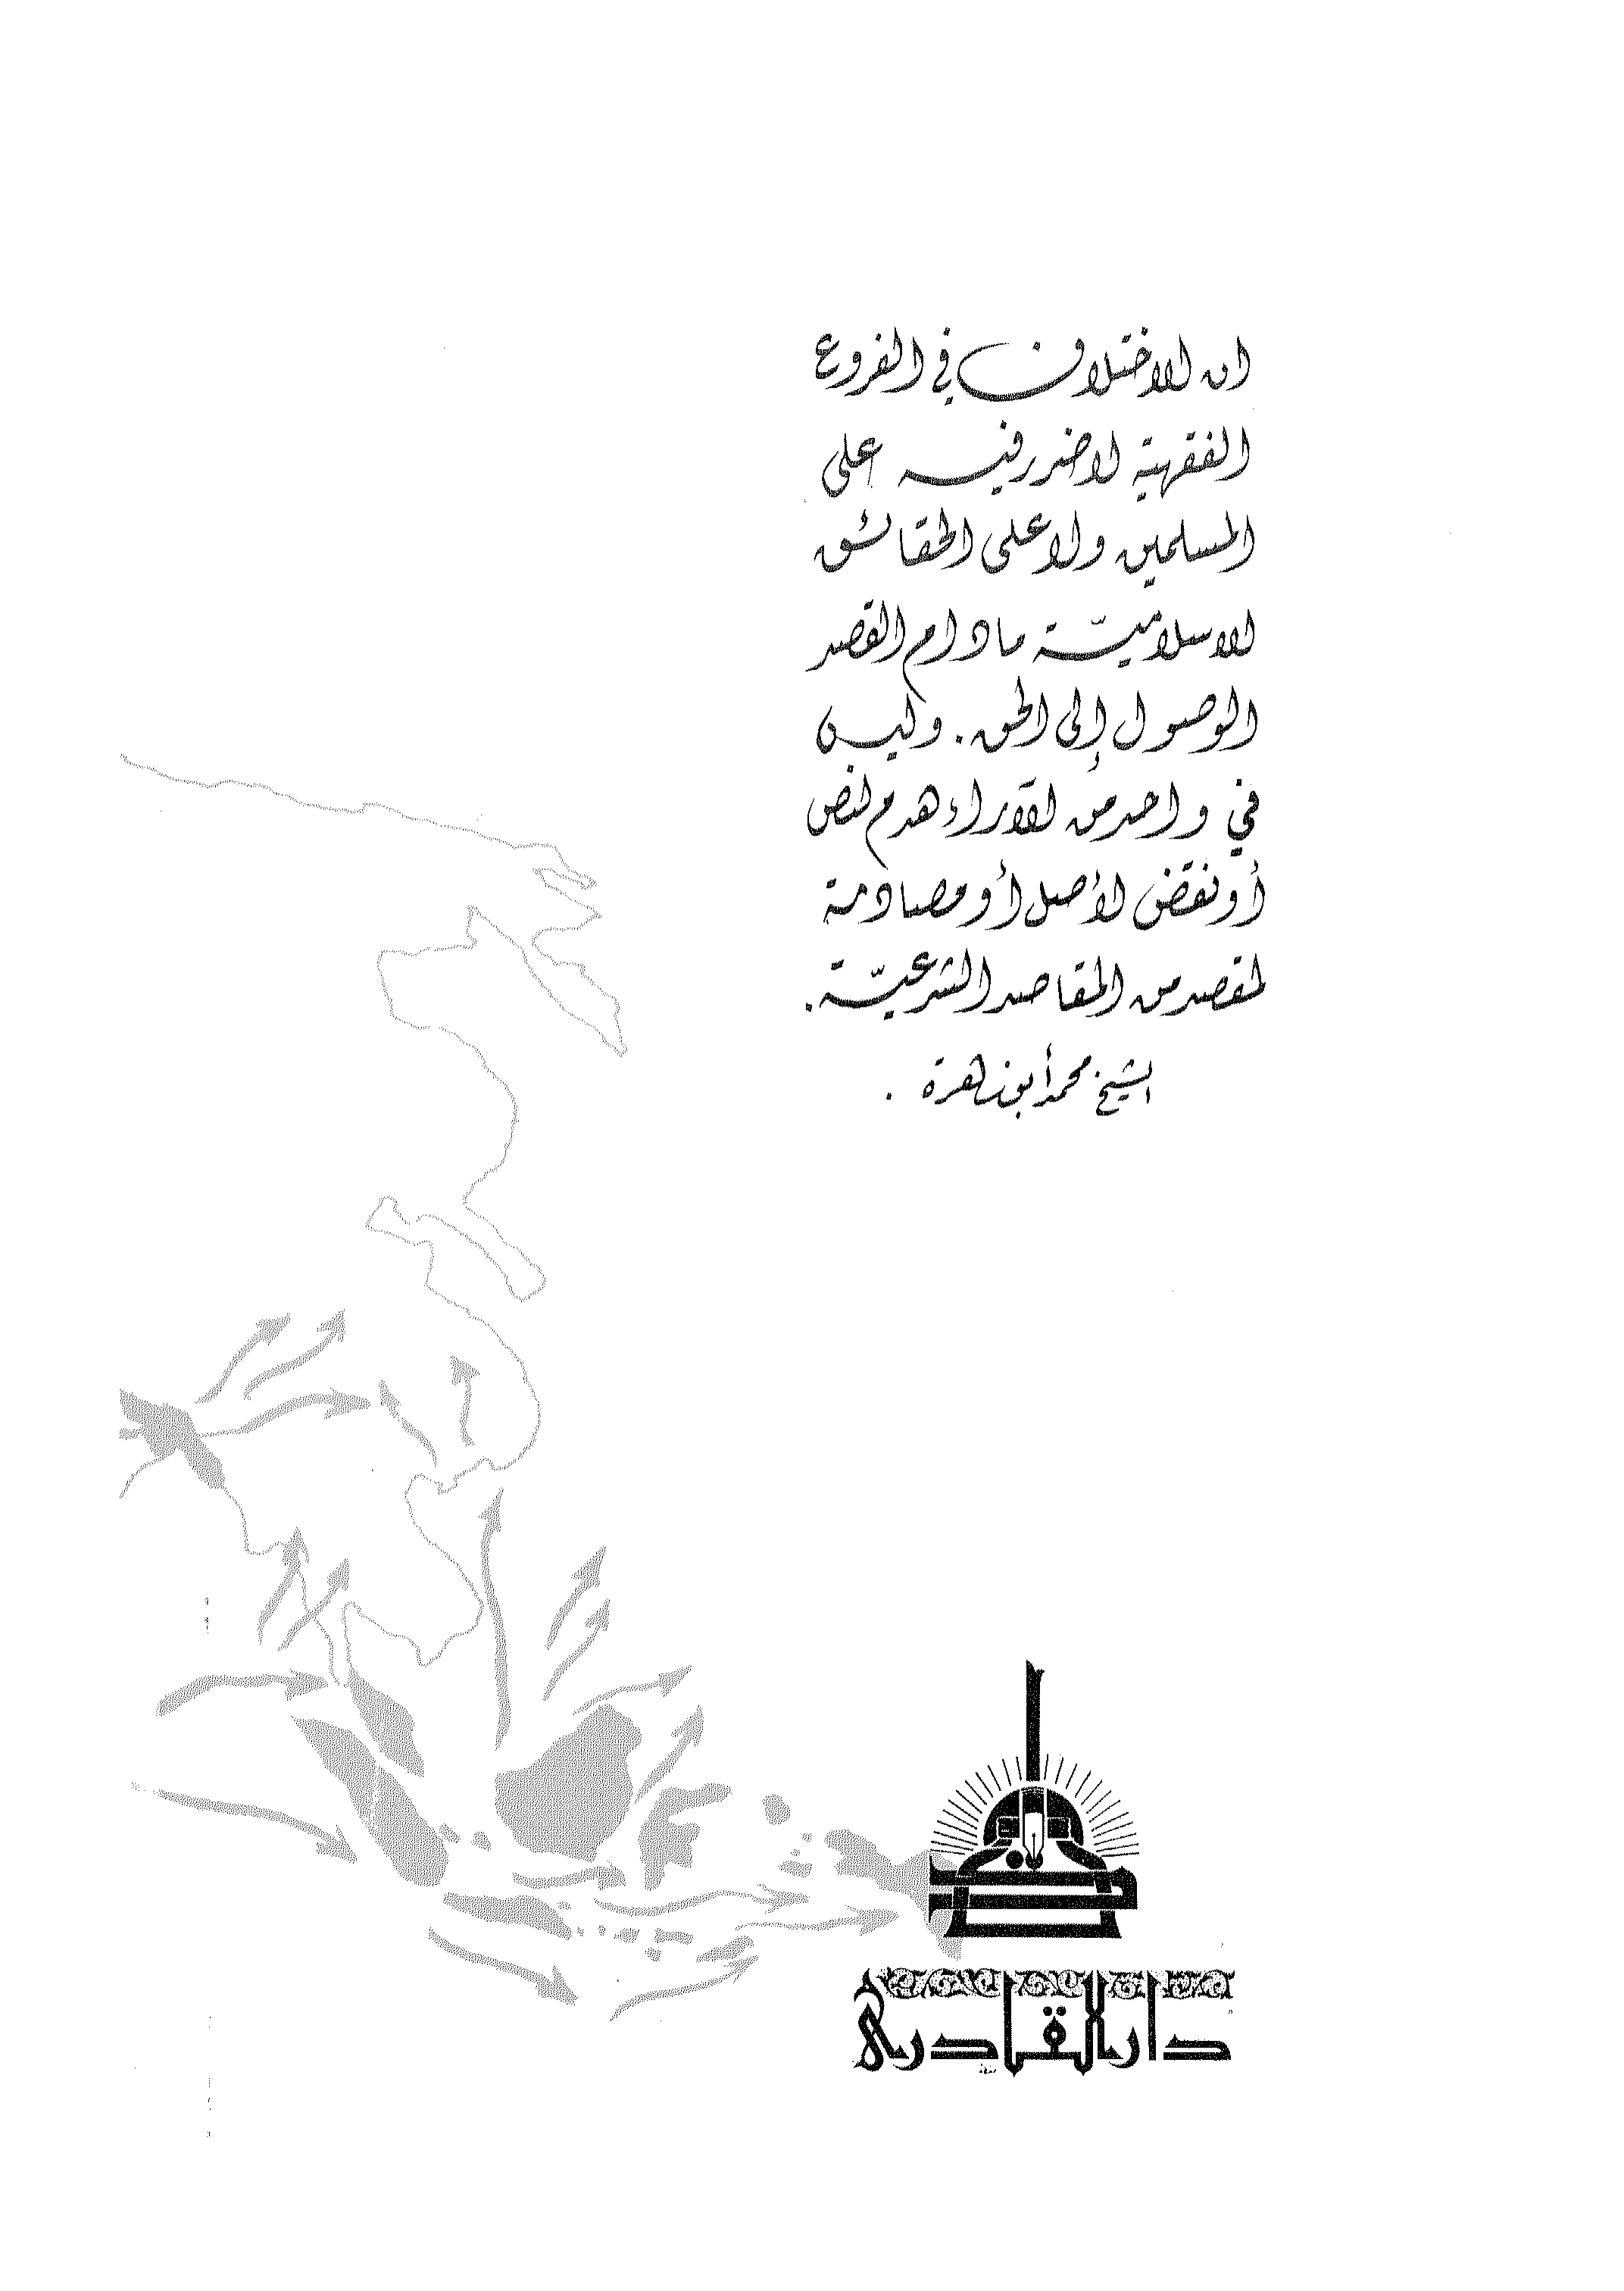 ان الاختلاف في الفروع
الفقهية لا ضرر فيه على
المسلمين ولا على الحقائق
الاسلاميّة مادام القصد
الوصول إلى الحق . وليس
في واحد من الآراء هدم لنص
أو نقض لأصل أو مصادمة
لمقصد من المقاصد الشرعيّة .
الشيخ محمد أبو زهرة .
دار القادري